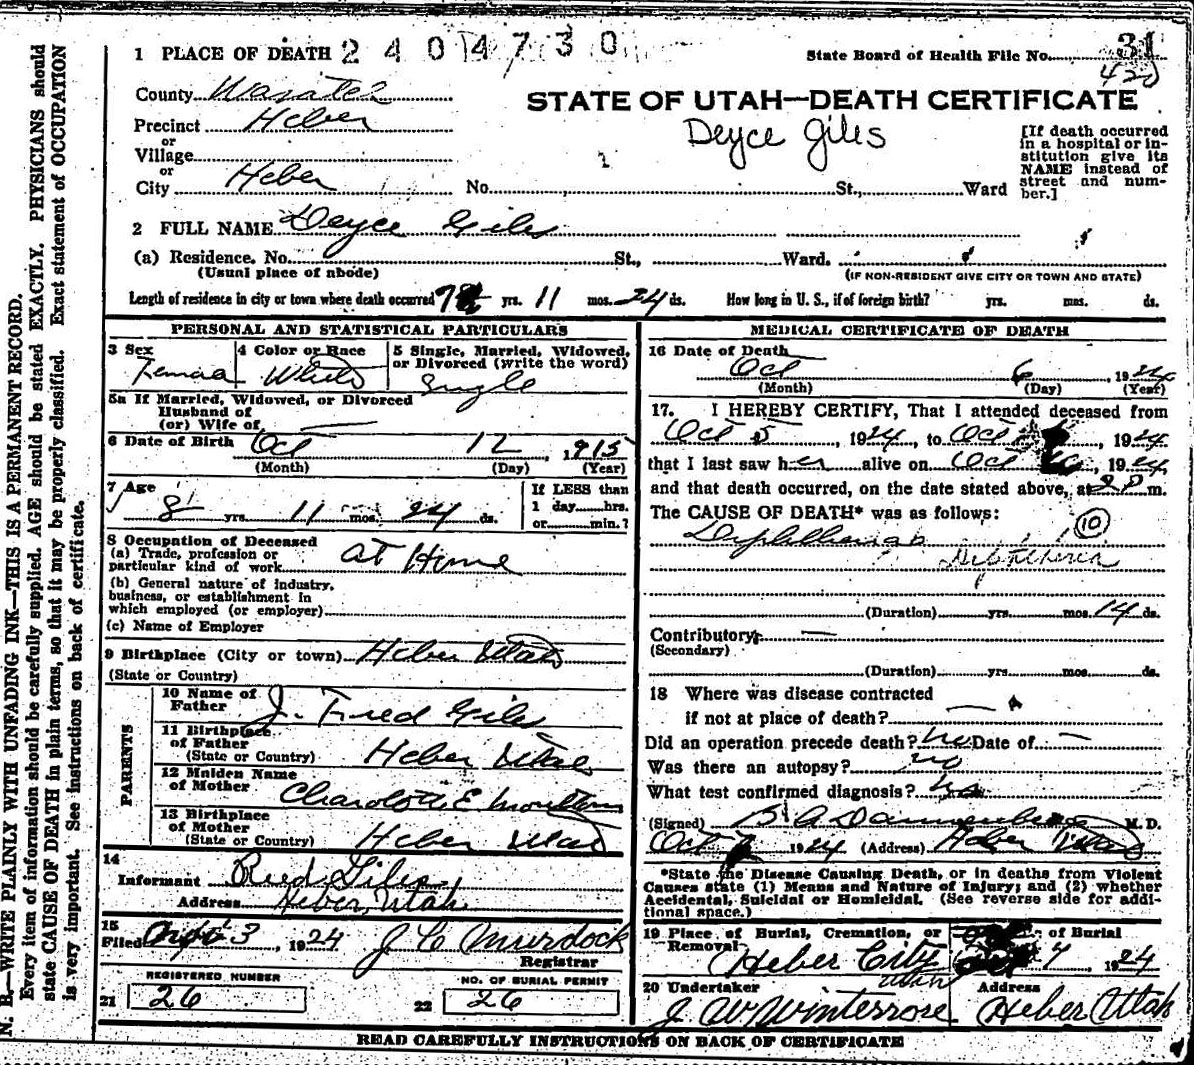 1 PLACE OF DEATH 2404730
State Board of Health File No. 31
420
County Wasatch
STATE OF UTAH—DEATH CERTIFICATE
Precinct Heber
Deyce Giles
or
Village
or
City Heber No. St., Ward
[If death occurred
in a hospital or in-
stitution give its
NAME instead of
street and num-
ber.]
2 FULL NAME Deyce Giles
(a) Residence. No. St., Ward.
(Usual place of abode)
(IF NON-RESIDENT GIVE CITY OR TOWN AND STATE)
Length of residence in city or town where death occurred yrs. 11 mos. 24 ds. How long in U. S., if of foreign birth? yrs. mos. ds.
PERSONAL AND STATISTICAL PARTICULARS
3 Sex
4 Color or Race
5 Single, Married, Widowed,
or Divorced (write the word)
White
Single
5a If Married, Widowed, or Divorced
Husband of
(or) Wife of
6 Date of Birth Oct 12, 1915
(Month) (Day) (Year)
7 Age
8 yrs. 11 mos. 24 ds.
If LESS than
1 day hrs.
or min.?
8 Occupation of Deceased
(a) Trade, profession or
particular kind of work At Home
(b) General nature of industry,
business, or establishment in
which employed (or employer)
(c) Name of Employer
9 Birthplace (City or town) Heber Utah
(State or Country)
PARENTS
10 Name of
Father J. Fred Giles
11 Birthplace
of Father
(State or Country) Heber Utah
12 Maiden Name
of Mother
13 Birthplace
of Mother
(State or Country) Heber Utah
14
Informant Reed Giles
Address Heber, Utah
15
Filed 3, 1924 J C Murdock
Registrar
REGISTERED NUMBER
21 26
NO. OF BURIAL PERMIT
22 26
MEDICAL CERTIFICATE OF DEATH
16 Date of Death
Oct 6, 1924
(Month) (Day) (Year)
17. I HEREBY CERTIFY, That I attended deceased from
Oct 5, 1924, to Oct, 1924
that I last saw her alive on Oct, 1924,
and that death occurred, on the date stated above, at m.
The CAUSE OF DEATH* was as follows:
10
Diphtheria
(Duration) yrs. mos. 14 ds.
Contributory
(Secondary)
(Duration) yrs. mos. ds.
18 Where was disease contracted
if not at place of death?
Did an operation precede death? no Date of —
Was there an autopsy? no
What test confirmed diagnosis?
(Signed) M. D.
Oct 1924 (Address) Heber Utah
*State the Disease Causing Death, or in deaths from Violent
Causes state (1) Means and Nature of Injury; and (2) whether
Accidental, Suicidal or Homicidal. (See reverse side for addi-
tional space.)
19 Place of Burial, Cremation, or
Removal
Heber City
Utah
of Burial
7, 1924
20 Undertaker
J. W. Winterrose
Address
Heber Utah
READ CAREFULLY INSTRUCTIONS ON BACK OF CERTIFICATE
N. B.—WRITE PLAINLY WITH UNFADING INK—THIS IS A PERMANENT RECORD.
Every item of information should be carefully supplied. AGE should be stated EXACTLY. PHYSICIANS should
state CAUSE OF DEATH in plain terms, so that it may be properly classified. Exact statement of OCCUPATION
is very important. See instructions on back of certificate.